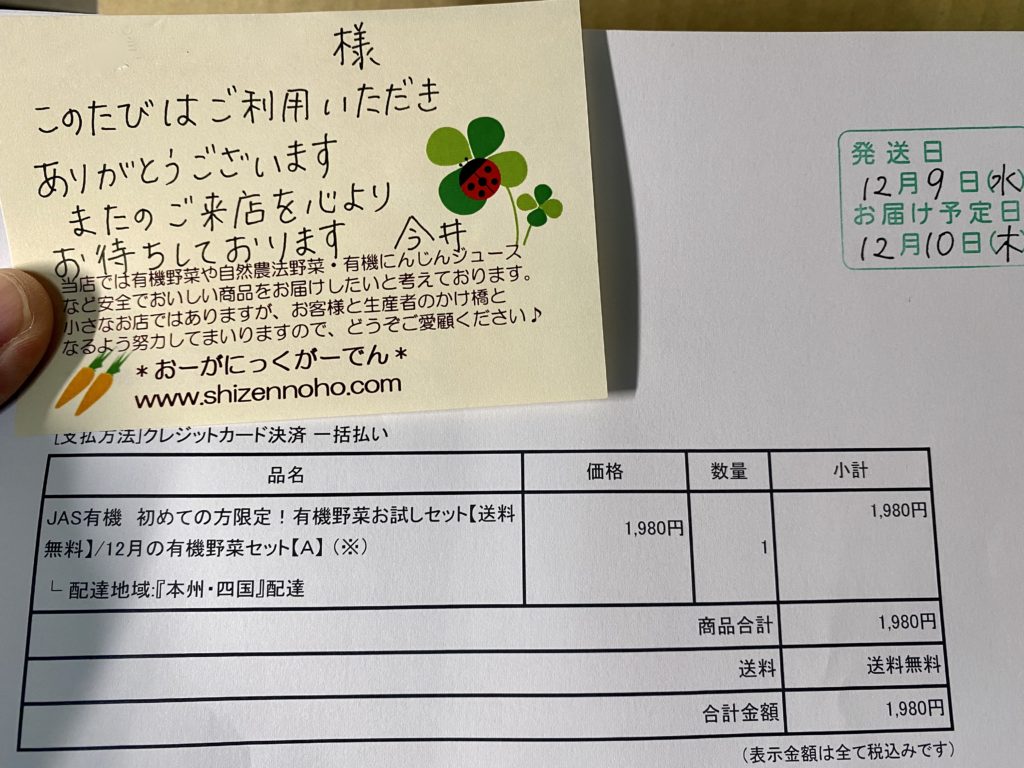 様
このたびはご利用いただき
ありがとうございます
またのご来店を心より
お待ちしております 今井
当店では有機野菜や自然農法野菜・有機にんじんジュース
など安全でおいしい商品をお届けしたいと考えております。
小さなお店ではありますが、お客様と生産者のかけ橋と
なるよう努力してまいりますので、どうぞご愛顧ください♪
*おーがにっくがーでん*
www.shizennoho.com
発送日
12月9日(水)
お届け予定日
12月10日(木)
[支払方法]クレジットカード決済 一括払い
品名 価格 数量 小計
JAS有機 初めての方限定!有機野菜お試しセット【送料
無料】/12月の有機野菜セット【A】(※) 1,980円 1 1,980円
└ 配達地域:『本州・四国』配達
商品合計 1,980円
送料 送料無料
合計金額 1,980円
(表示金額は全て税込みです)